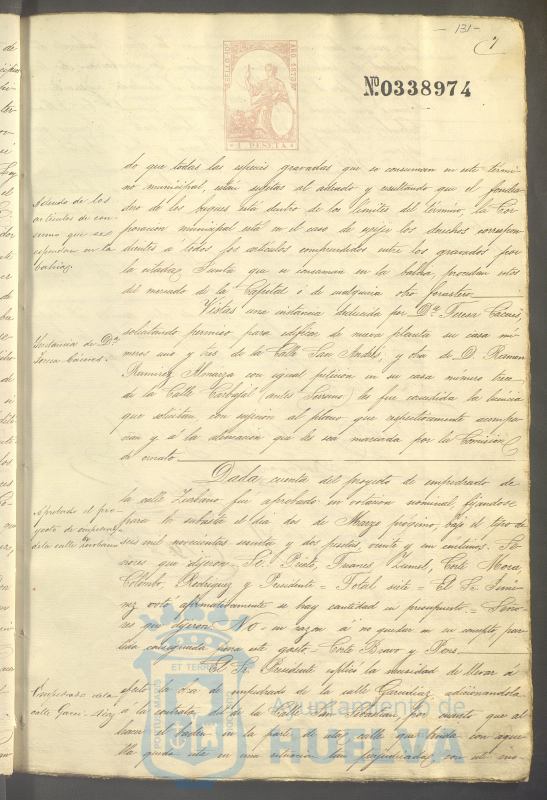 - 131 -
7
SELLO 10º AÑO 1879
1 PESETA
Nº 0338974
do que todas las especies gravadas que se consuman en este térmi-
no municipal, están sujetas al adeudo y resultando que el fondea-
dero de los buques está dentro de los límites del término, la Cor-
poración municipal está en el caso de exijir los derechos correspon-
dientes á todos los artículos comprendidos entre los gravados por
la citada Junta que se consuman en la bahía, procedan estos
del mercado de la Capital ó de cualquiera otro forastero
Adeudo de los
artículos de con-
sumo que se
espendan en la
bahía
Vistas una instancia deducida por Dª Teresa Cáceres,
solicitando permiso para edificar de nueva planta su casa nú-
meros uno y tres de la Calle San Andrés, y otra de D. Ramon
Ramirez con igual peticion en su casa número trece
de la Calle Carbajal (antes Serrano) les fue concedida la licencia
que solicitan con sujecion al plano que respectivamente acompa-
ñan y á la alineacion que les sea marcada por la Comision
de ornato
Instancia de Dª
Teresa Cáceres
Dada cuenta del proyecto de empedrado de
la calle Zurbano fué aprobado en votacion nominal fijandose
para la subasta el dia dos de Marzo próximo, bajo el tipo de
seis mil novecientas sesenta y dos pesetas, veinte y un céntimos. Se-
ñores que dijeron - Si. Prieto, Trianes, Zumel, Corte Mora,
Colombo, Rodriguez y Presidente = Total siete = El Sr. Jime-
nez votó afirmativamente si hay cantidad en presupuesto - Seño-
res que dijeron No - en razon á no quedar en su concepto par-
tida consignada para este gasto - Corte Bravo y Pons
Aprobado el pro-
yecto de empedrado
de la calle Zurbano
El Sr. Presidente esplicó la necesidad de llevar á
efecto la obra de empedrado de la calle Garcidiaz adicionandola
á la contrata del de la Calle San Sebastian, por cuanto que al
hacer el baden en la parte de esta calle que linda con aque-
lla queda esta en una situacion tan perjudicada con este mo-
Empedrado de la
calle Garci-Diaz
PORTUS MARIS ET TERRAE CUSTODIA
Ayuntamiento de
HUELVA